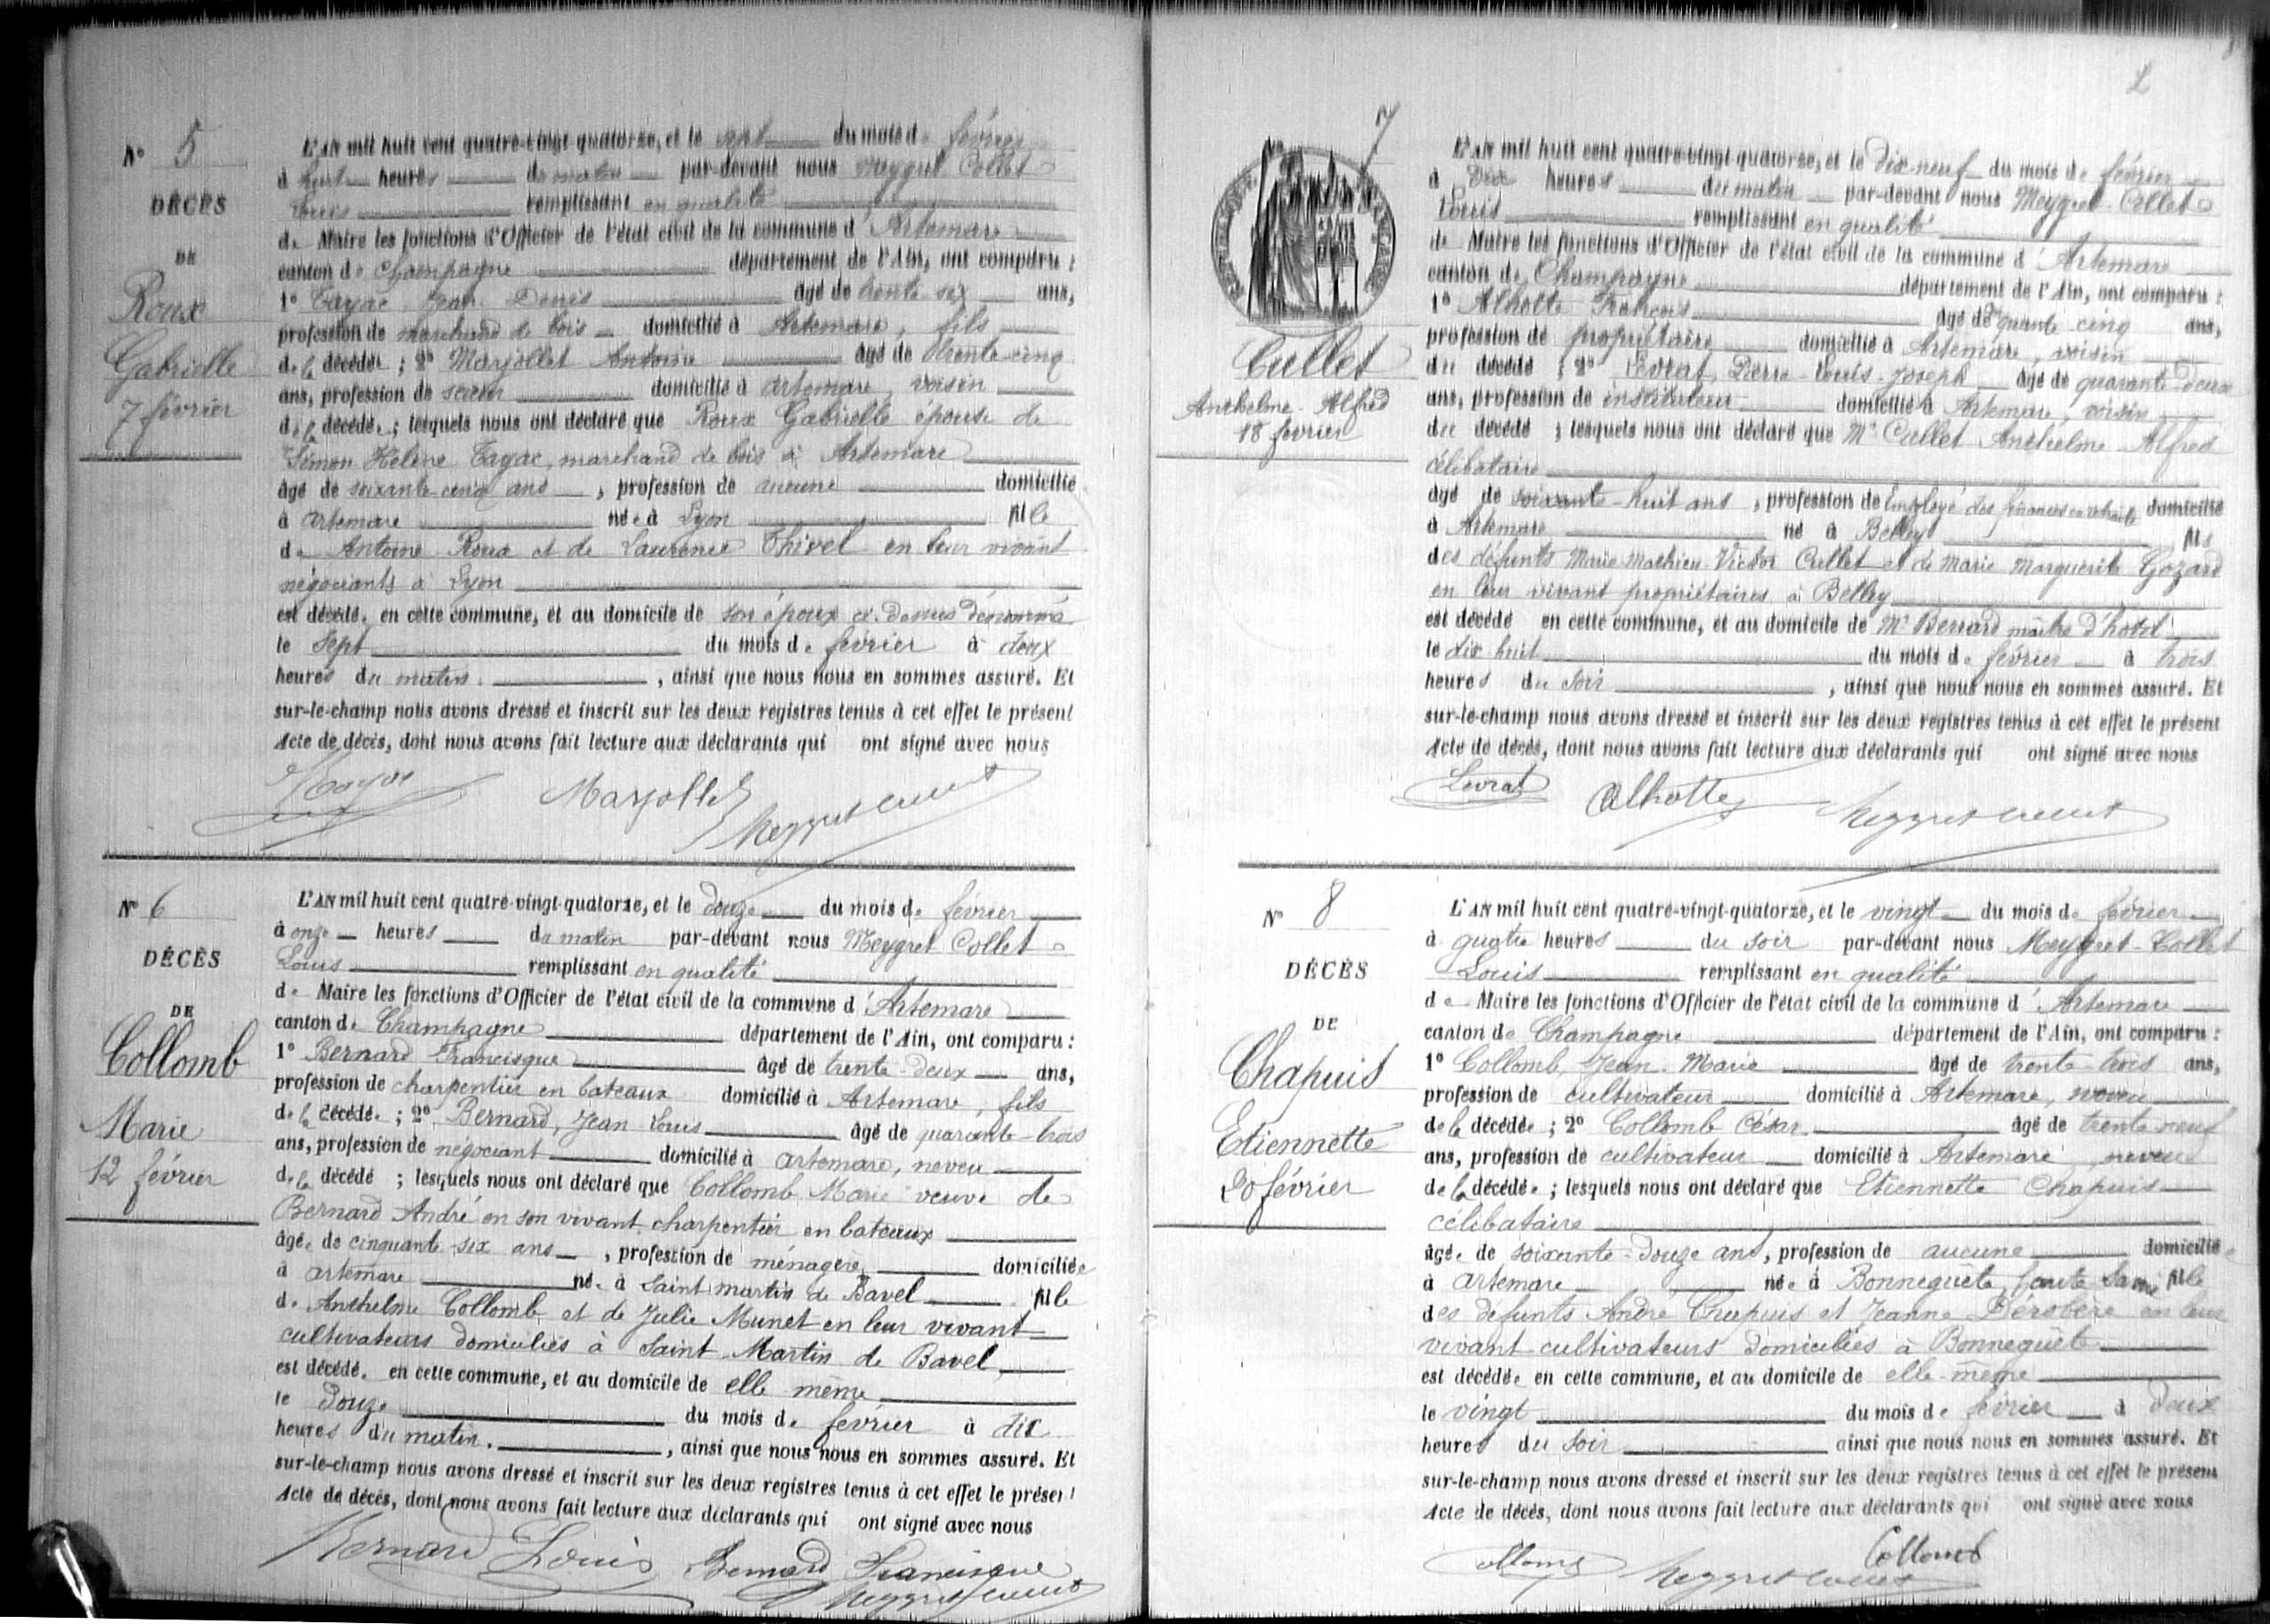 N° 5
DÉCÈS
DE
Roux
Gabrielle
7 février
L'AN mil huit cent quatre-vingt-quatorze, et le sept du mois de février
à huit heures du matin par-devant nous Meygret Collet
Louis remplissant en qualité
de Maire les fonctions d'Officier de l'état civil de la commune d'Artemare
canton de Champagne département de l'Ain, ont comparu :
1° Tayac Jean Denis âgé de trente six ans,
profession de marchand de bois domicilié à Artemare, fils
de la décédée ; 2° Marjollet Antoine âgé de trente cinq
ans, profession de domicilié à artemare, voisin
de la décédée ; lesquels nous ont déclaré que Roux Gabrielle épouse de
Simon Hélène Tayac, marchand de bois à Artemare
âgé de soixante cinq ans , profession de aucune domicilié
à artemare née à Lyon fille
de Antoine Roux et de Laurence Thivel en leur vivant
négociants à Lyon
est décédé. en cette commune, et au domicile de son époux ci-dessus dénommé
le sept du mois de février à deux
heures du matin. , ainsi que nous nous en sommes assuré. Et
sur-le-champ nous avons dressé et inscrit sur les deux registres tenus à cet effet le présent
Acte de décès, dont nous avons fait lecture aux déclarants qui ont signé avec nous
Marjollet
Meygret Collet
N° 6
DÉCÈS
DE
Collomb
Marie
12 février
L'AN mil huit cent quatre-vingt-quatorze, et le douze du mois de février
à onze heures du matin par-devant nous Meygret Collet
Louis remplissant en qualité
de Maire les fonctions d'Officier de l'état civil de la commune d'Artemare
canton de Champagne département de l'Ain, ont comparu :
1° Bernard Francisque âgé de trente-deux ans,
profession de charpentier en bateaux domicilié à Artemare, fils
de la décédée ; 2° Bernard, Jean Louis âgé de quarante-trois
ans, profession de négociant domicilié à artemare, neveu
de la décédé ; lesquels nous ont déclaré que Collomb Marie veuve de
Bernard André en son vivant charpentier en bateaux
âgée de cinquante-six ans , profession de ménagère domiciliée
à artemare née à Saint martin de Bavel fille
de Anthelme Collomb et de Julie Munet en leur vivant
cultivateurs domiciliés à Saint-Martin de Bavel
est décédé. en cette commune, et au domicile de elle même
le douze du mois de février à dix
heures du matin. , ainsi que nous nous en sommes assuré. Et
sur-le-champ nous avons dressé et inscrit sur les deux registres tenus à cet effet le présent
Acte de décès, dont nous avons fait lecture aux déclarants qui ont signé avec nous
Bernard Louis Bernard Francisque
Meygret Collet
7
RÉPUBLIQUE FRANÇAISE
Cullet
Anthelme-Alfred
18 février
L'AN mil huit cent quatre-vingt-quatorze, et le dix-neuf du mois de février
à Dix heures du matin par-devant nous Meygret-Collet
Louis remplissant en qualité
de Maire les fonctions d'Officier de l'état civil de la commune d'Artemare
canton de Champagne département de l'Ain, ont comparu :
1° Alhotte François âgé de quante cinq ans,
profession de propriétaire domicilié à Artemare, voisin
du décédé ; 2° Levrat, Pierre-Louis-Joseph âgé de quarante-deux
ans, profession de instituteur domicilié à Artemare, voisin
du décédé ; lesquels nous ont déclaré que Mr Cullet Anthelme Alfred
célibataire
âgé de soixante-huit ans , profession de Employé des finances en retraite domicilié
à Artemare né à Belley fils
des défunts Marie Mathieu Victor Cullet et de Marie Marguerite Gozard
en leur vivant propriétaires à Belley
est décédé en cette commune, et au domicile de Mr Berrard maître d'hôtel
le dix huit du mois de février à trois
heures du soir , ainsi que nous nous en sommes assuré. Et
sur-le-champ nous avons dressé et inscrit sur les deux registres tenus à cet effet le présent
Acte de décès, dont nous avons fait lecture aux déclarants qui ont signé avec nous
Levrat Alhotte Meygret Collet
N° 8
DÉCÈS
DE
Chapuis
Etiennette
20 février
L'AN mil huit cent quatre-vingt-quatorze, et le vingt du mois de février
à quatre heures du soir par-devant nous Meygret-Collet
Louis remplissant en qualité
de Maire les fonctions d'Officier de l'état civil de la commune d'Artemare
canton de Champagne département de l'Ain, ont comparu :
1° Collomb, Jean-Marie âgé de trente-trois ans,
profession de cultivateur domicilié à Artemare, neveu
de la décédée ; 2° Collomb César âgé de trente neuf
ans, profession de cultivateur domicilié à Artemare neveu
de la décédée ; lesquels nous ont déclaré que Etiennette Chapuis
célibataire
âgée de soixante-douze ans , profession de aucune domiciliée
à artemare née à Bonneguête haute Savoie fille
des défunts André Chapuis et Jeanne Dérobère en leur
vivant cultivateurs domiciliés à Bonneguête
est décédée en cette commune, et au domicile de elle-même
le vingt du mois de février à deux
heures du soir ainsi que nous nous en sommes assuré. Et
sur-le-champ nous avons dressé et inscrit sur les deux registres tenus à cet effet le présent
Acte de décès, dont nous avons fait lecture aux déclarants qui ont signé avec nous
Collomb Meygret Collet Collomb